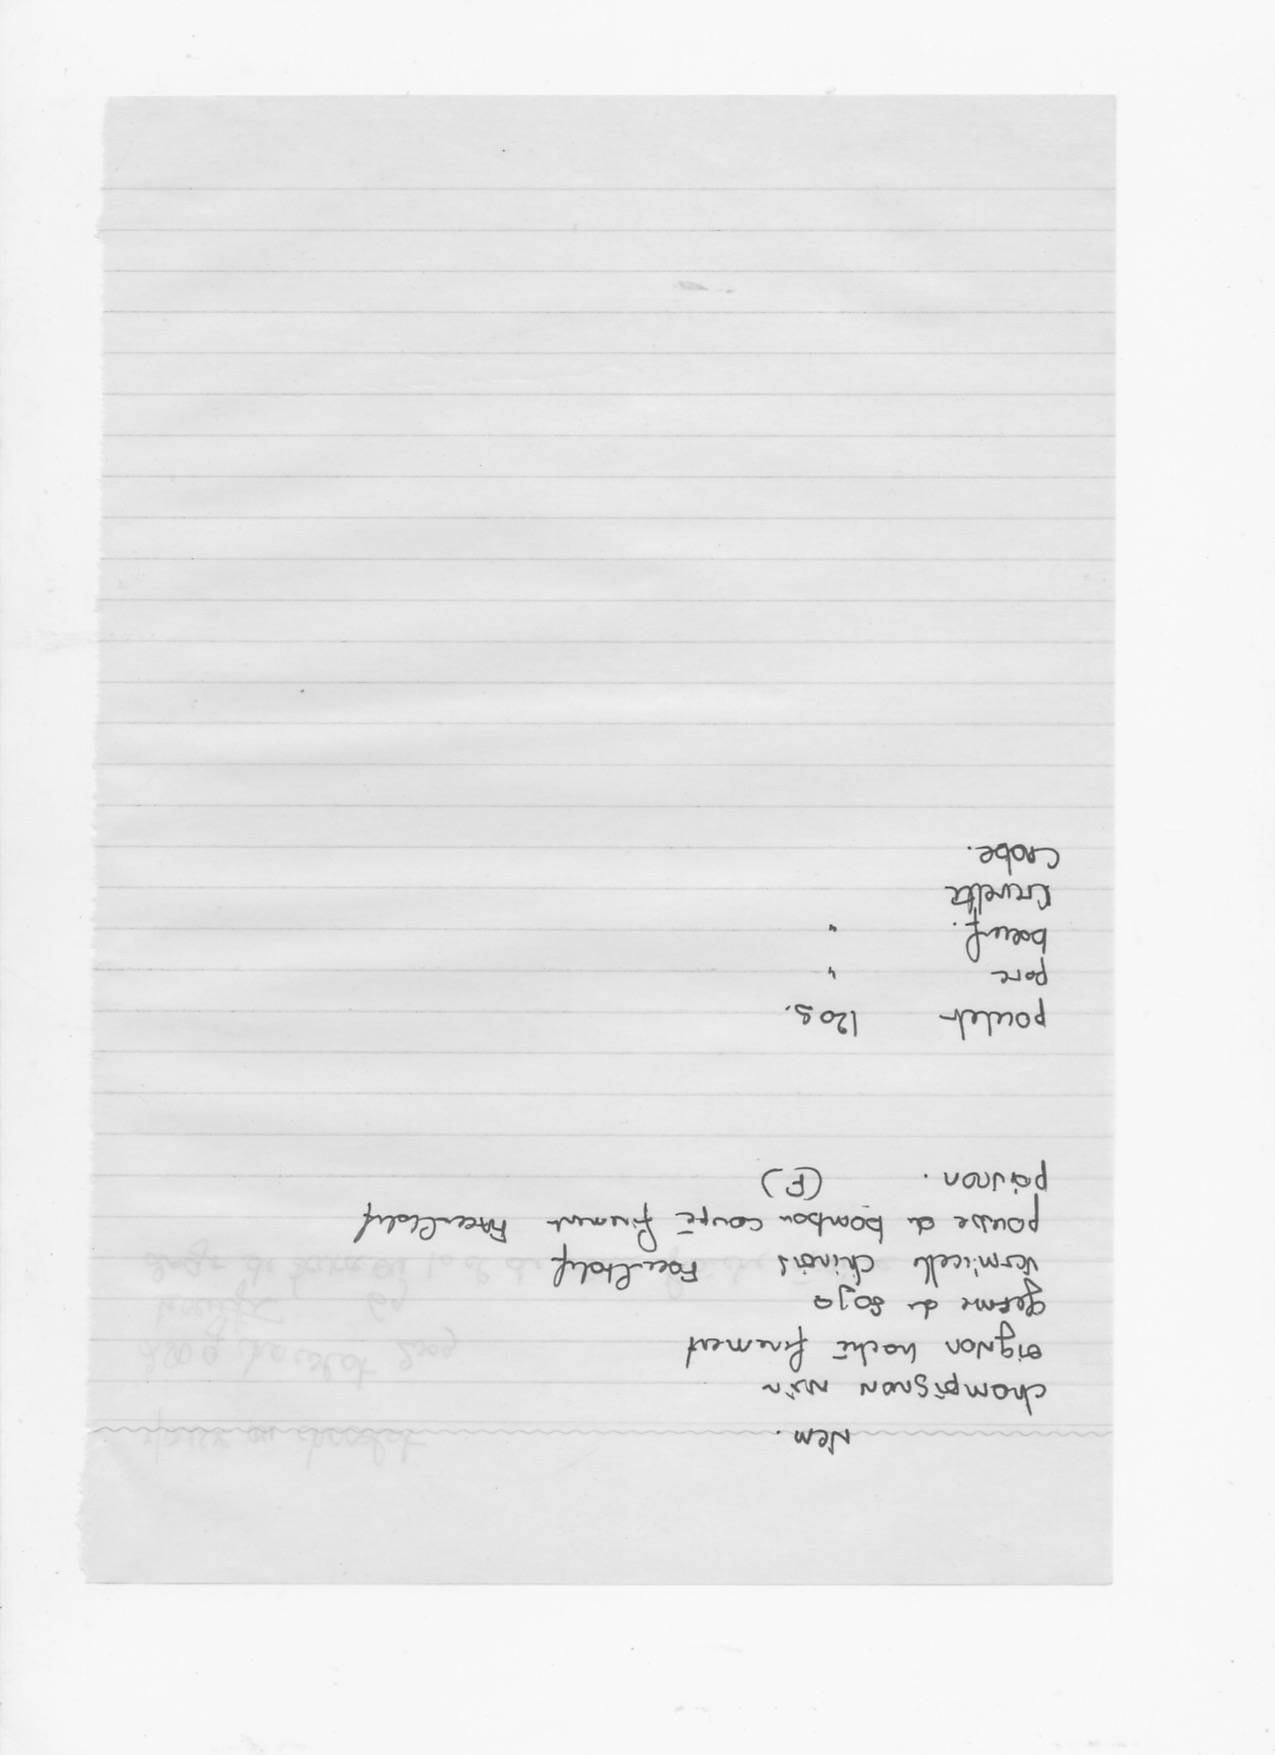 Nem.
champignon noir
oignon haché finement
germe de soja
vermicelle chinois Facultatif
pousse de bambou coupé finement Facultatif
poivron. (F)
poulet 120 g.
porc "
boeuf. "
Crevette
Crabe.